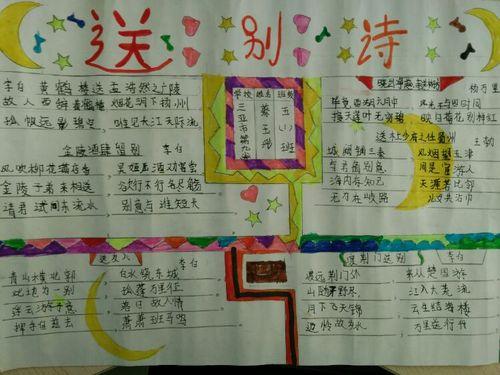 送别诗
李白 黄鹤楼送孟浩然之广陵
故人西辞黄鹤楼 烟花三月下扬州
孤帆远影碧空 唯见长江天际流
金陵酒肆留别 李白
风吹柳花满店香 吴姬压酒劝客尝
金陵子弟来相送 欲行不行各尽觞
请君试问东流水 别意与谁短长
学校 姓名 班级
三亚市第九
五(1)班
杨万里
毕竟西湖六月中 风光不与四时同
接天莲叶无穷碧 映日荷花别样红
送杜少府之任蜀州 王勃
城阙辅三秦 风烟望五津
与君离别意 同是宦游人
海内存知己 天涯若比邻
无为在歧路
送友人 李白
青山横北郭 白水绕东城
此地为一别 孤蓬万里征
浮云游子意 落日故人情
挥手自兹去 萧萧班马鸣
渡荆门送别 李白
渡远荆门外 来从楚国游
山随平野尽 江入大荒流
月下飞天镜 云生结海楼
仍怜故乡水 万里送行舟